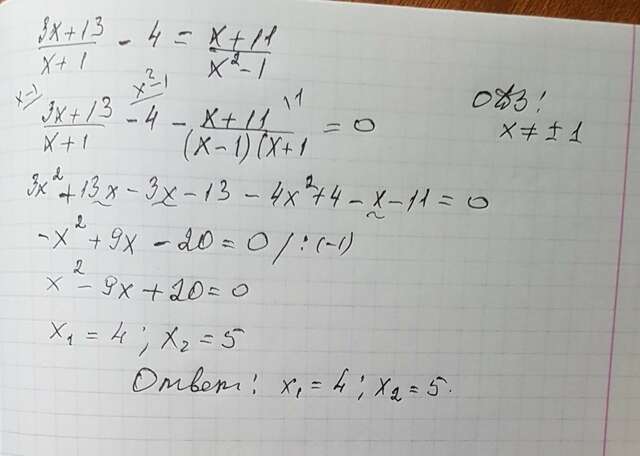 (3x+13)/(x+1) - 4 = (x+11)/(x²-1)
ОДЗ!
x-1/ x²-1/ \1
(3x+13)/(x+1) - 4 - (x+11)/((x-1)(x+1) = 0
x ≠ ± 1
3x² + 13x - 3x - 13 - 4x² + 4 - x - 11 = 0
-x² + 9x - 20 = 0 /:(-1)
x² - 9x + 20 = 0
x₁ = 4; x₂ = 5
Ответ: x₁ = 4; x₂ = 5.